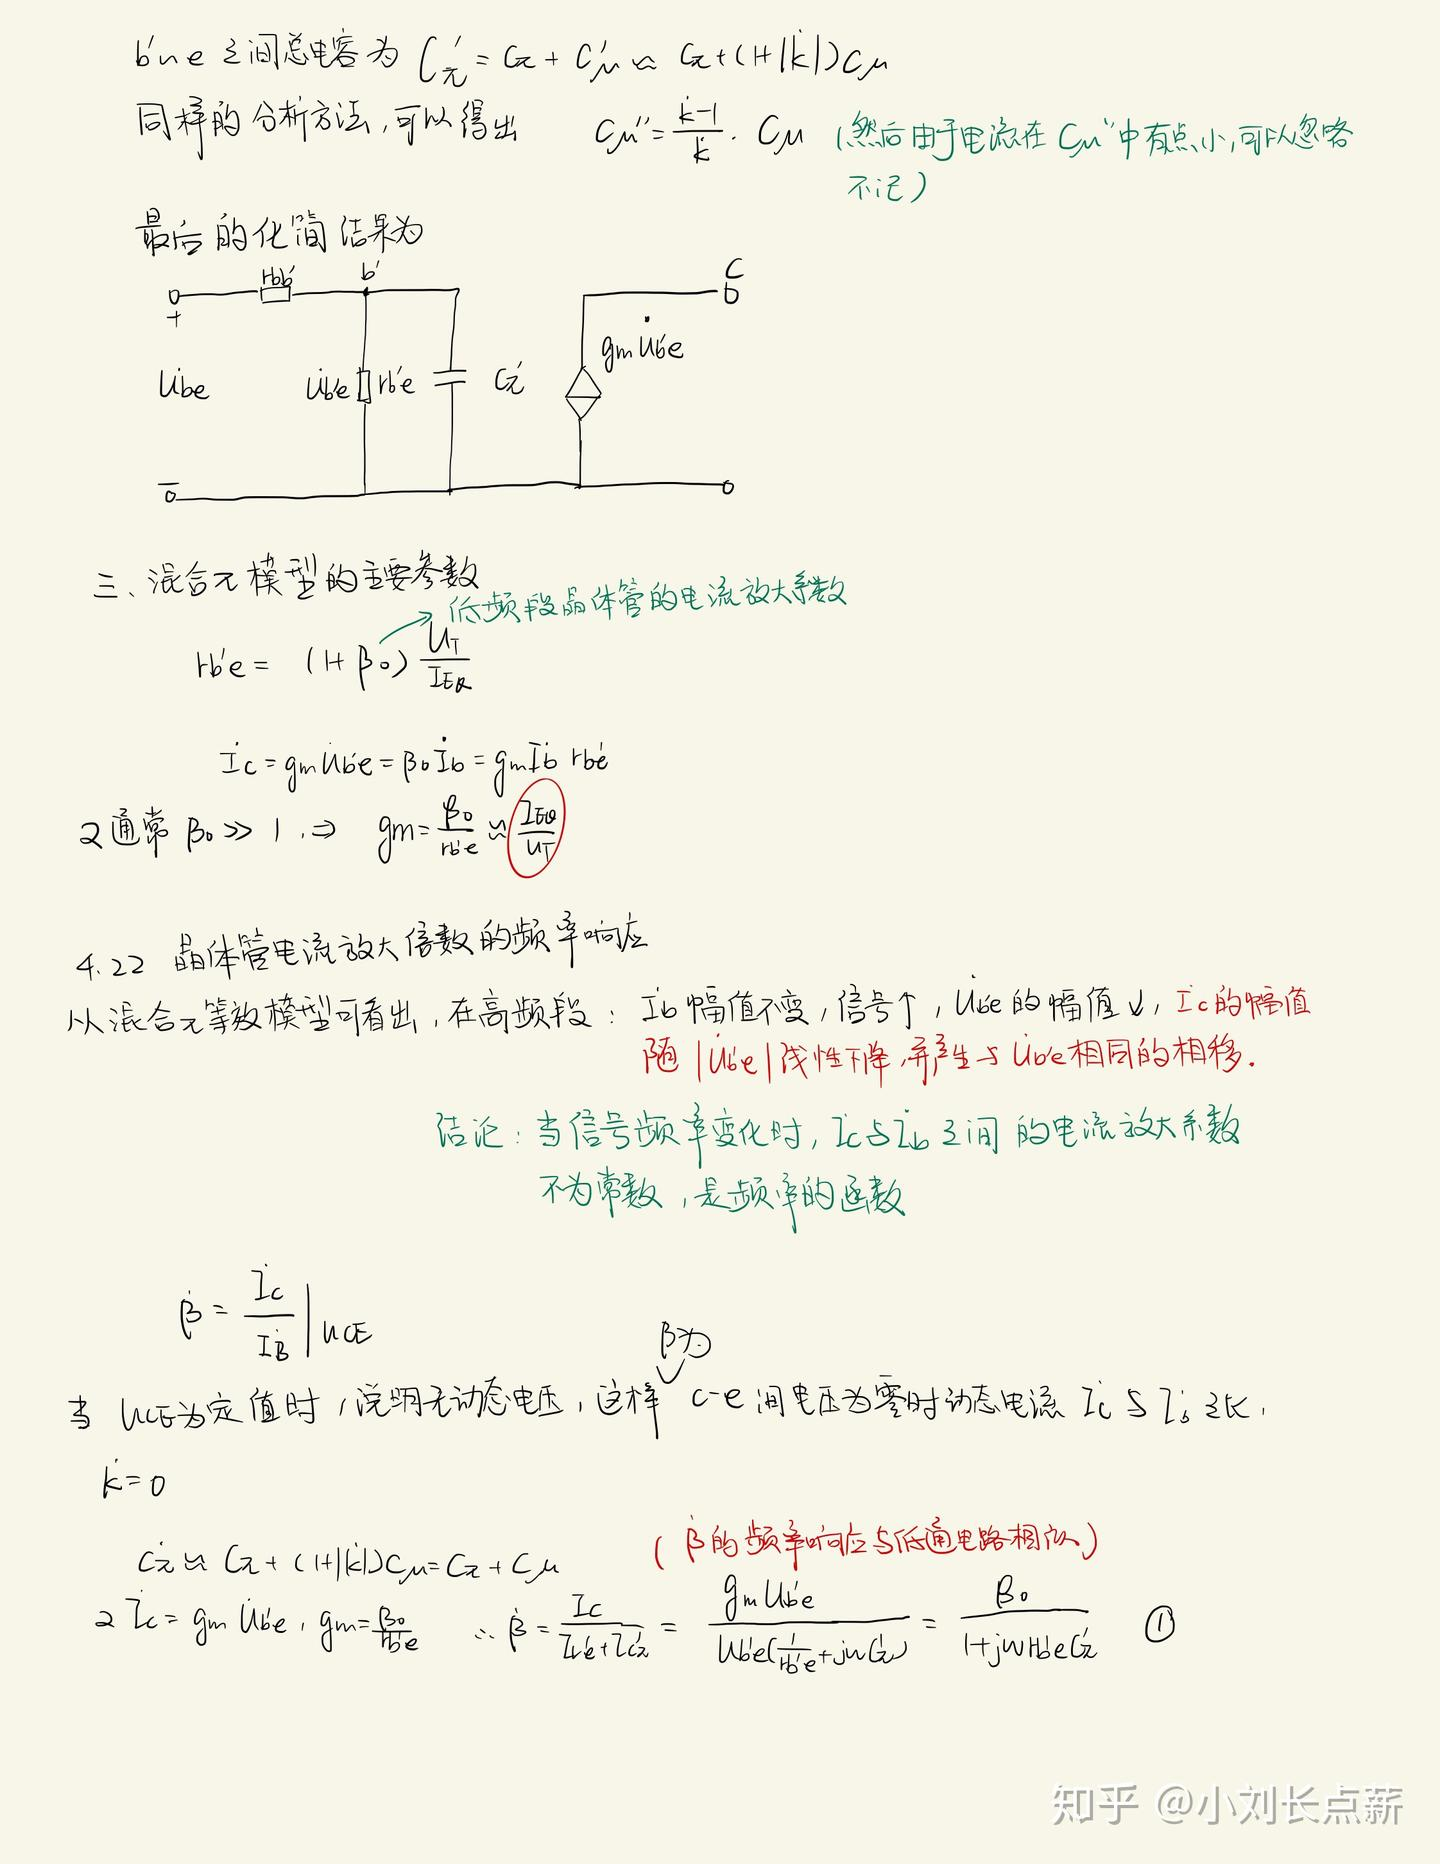 b'与e之间总电容为 Cπ' = Cπ + Cμ' ≈ Cπ+(1+|k̇|)Cμ
同样的分析方法,可以得出 Cμ'' = (k̇-1)/k̇ · Cμ (然后由于电流在Cμ''中有点小,可以忽略
不记)
最后的化简结果为
rbb' b' c
+
U̇be U̇b'e rb'e Cπ' gmU̇b'e
-
三、混合π模型的主要参数
低频段晶体管的电流放大系数
rb'e = (1+β0) UT/IEQ
İc = gmU̇b'e = β0İb = gmİb rb'e
又通常 β0 >> 1, ⇒ gm = β0/rb'e ≈ IEQ/UT
4.22 晶体管电流放大倍数的频率响应
从混合π等效模型可看出,在高频段: İb幅值不变,信号↑,U̇b'e的幅值↓,İc的幅值
随|U̇b'e|线性下降,并产生与U̇b'e相同的相移.
结论:当信号频率变化时,İc与İb之间的电流放大系数
不为常数,是频率的函数
β̇ = İc/İB |UCE
β为
当UCE为定值时,说明无动态电压,这样 c-e间电压为零时动态电流İc与İb之比,
k̇=0
Cπ' ≈ Cπ+(1+|k̇|)Cμ = Cπ + Cμ (β̇的频率响应与低通电路相似)
又İc = gmU̇b'e, gm = β0/rb'e ∴ β̇ = İc/(Irb'e+ICπ') = gmUb'e/(Ub'e(1/rb'e+jωCπ')) = β0/(1+jωrb'eCπ') ①
知乎 @小刘长点薪